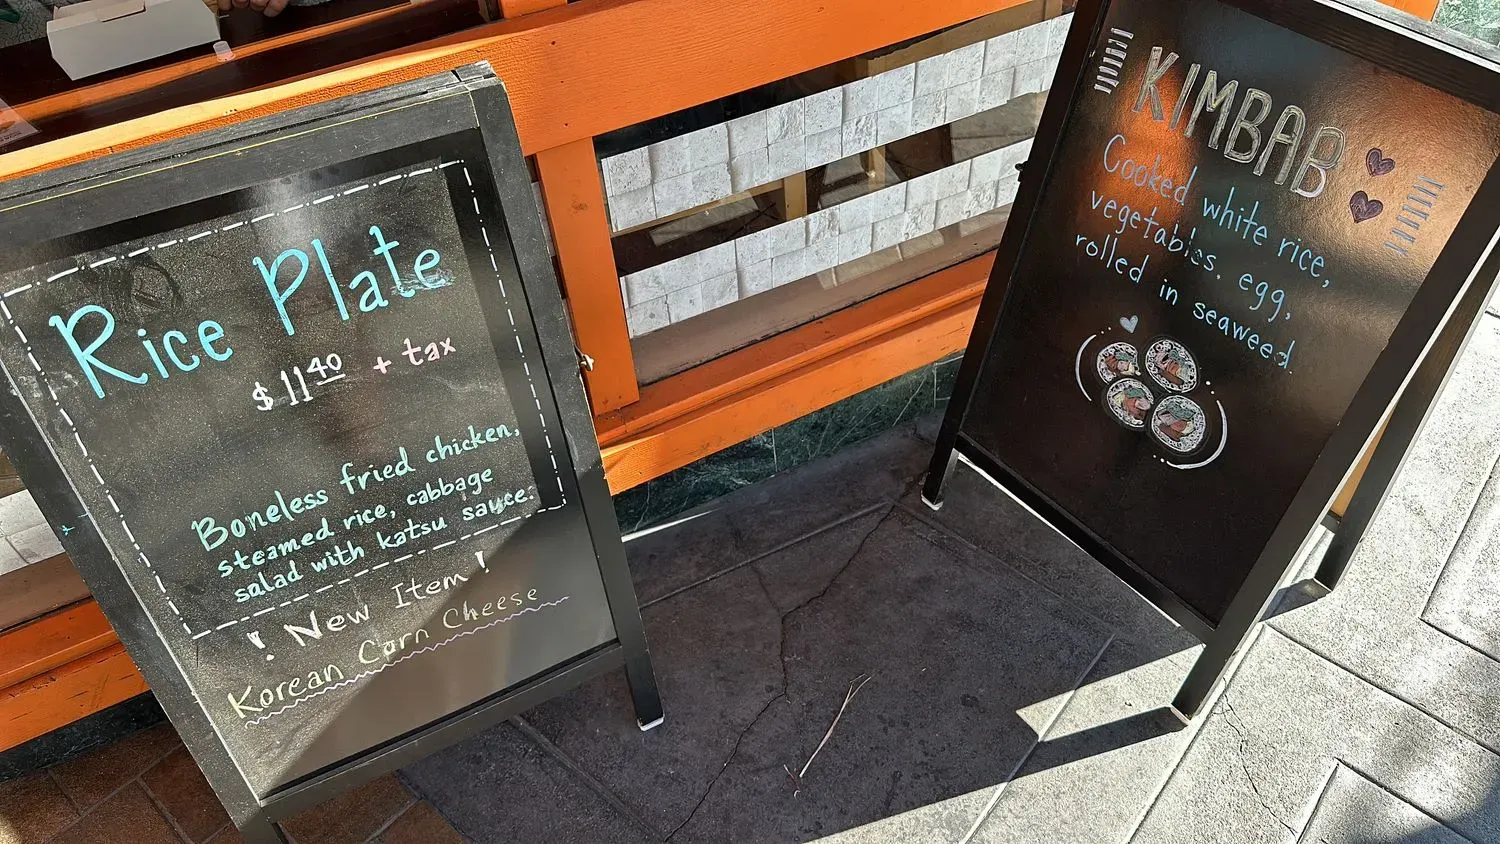 Rice Plate
$11.40 + tax
Boneless fried chicken,
steamed rice, cabbage
salad with katsu sauce.
! New Item !
Korean Corn Cheese
KIMBAB
Cooked white rice,
vegetables, egg,
rolled in seaweed.